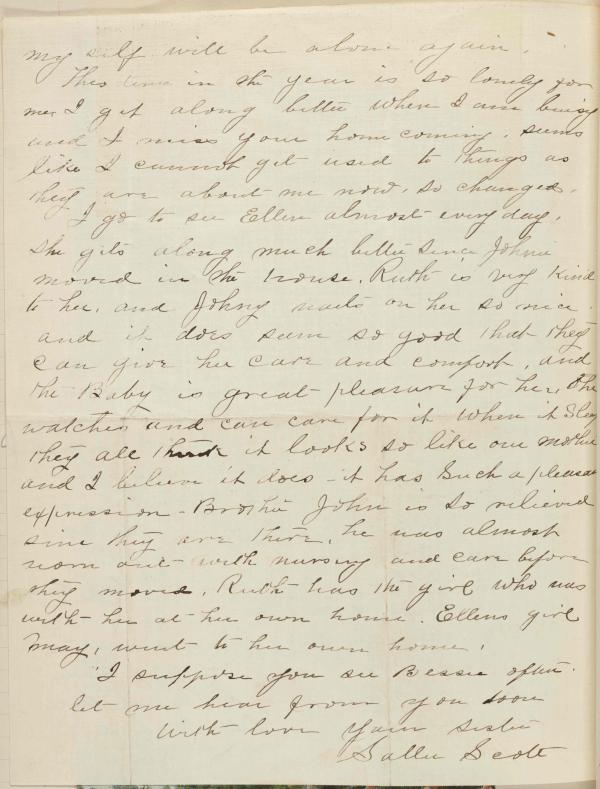 my self will be alone again.
This time in the year is so lonely for
me. I get along better when I am buisy
and I miss your home coming. seems
like I cannot get used to things as
they are about me now. so changed.
I go to see Ellen almost every day.
she gets along much better since Johnie
moved in the house. Ruth is very kind
to her, and Johny waits on her so nice.
and it does seem so good that they
can give her care and comfort, and
the Baby is great pleasure for her, she
watches and can care for it when it Sleep
they all think it looks so like our mother
and I believe it does - it has Such a pleasant
expression - Brother John is so relieved
sine they are there, he was almost
worn out with nursing and care before
they moved. Ruth has the girl who was
with her at her own home. Ellens girl
May, went to her own home.
I suppose you see Bessie often.
let me hear from you soon
With love your sister
Sallie Scott